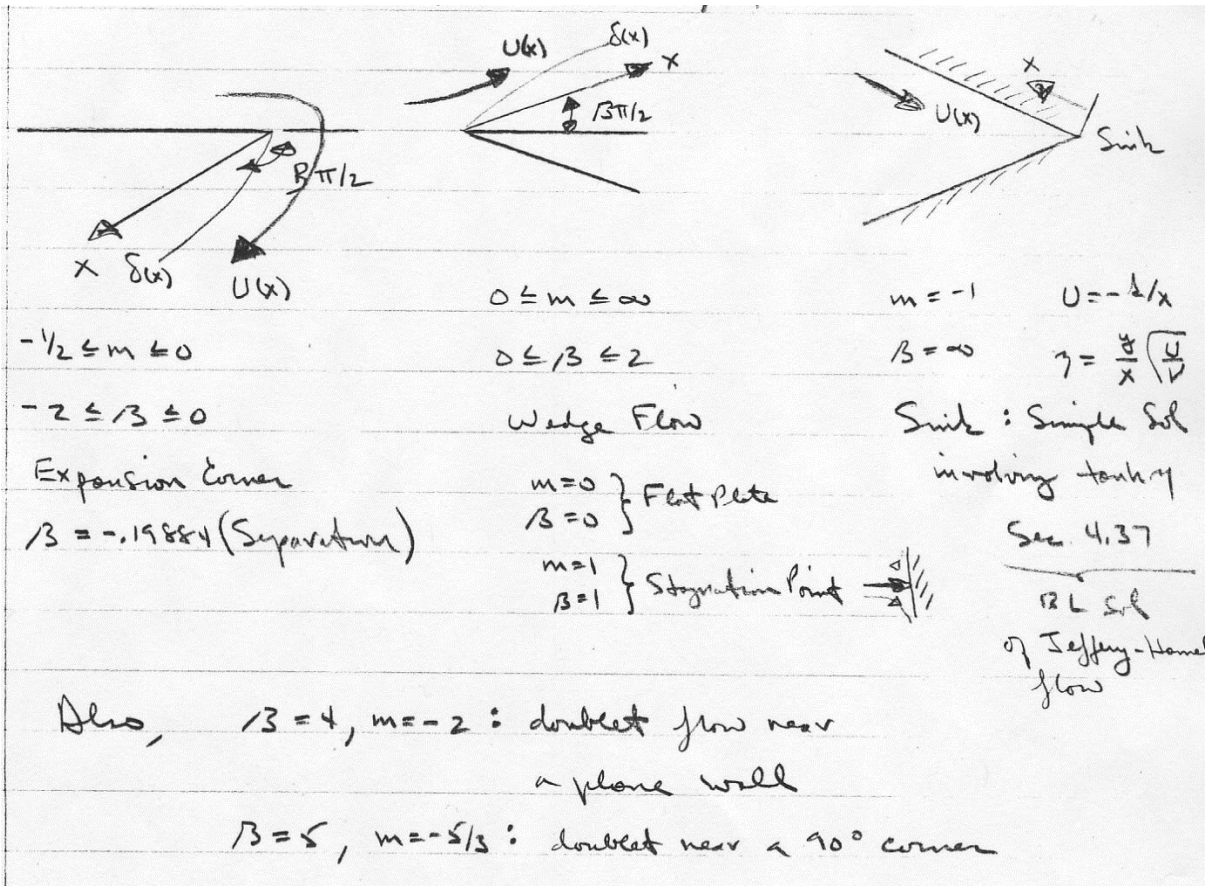 U(x)
δ(x)
x
βπ/2
x
U(x)
Sink
βπ/2
x
δ(x)
U(x)
-1/2 ≤ m ≤ 0
-2 ≤ β ≤ 0
Expansion Corner
β = -.19884 (Separation)
0 ≤ m ≤ ∞
0 ≤ β ≤ 2
Wedge Flow
m=0
β=0 } Flat Plate
m=1
β=1 } Stagnation Point
m = -1 U = -1/x
β = ∞ η = y/x √U/ν
Sink : Simple Sol
involving tanh η
Sec. 4.37
BL Sol
of Jeffery-Hamel
flow
Also, β = 4, m = -2 : doublet flow near
a plane wall
β = 5, m = -5/3 : doublet near a 90° corner